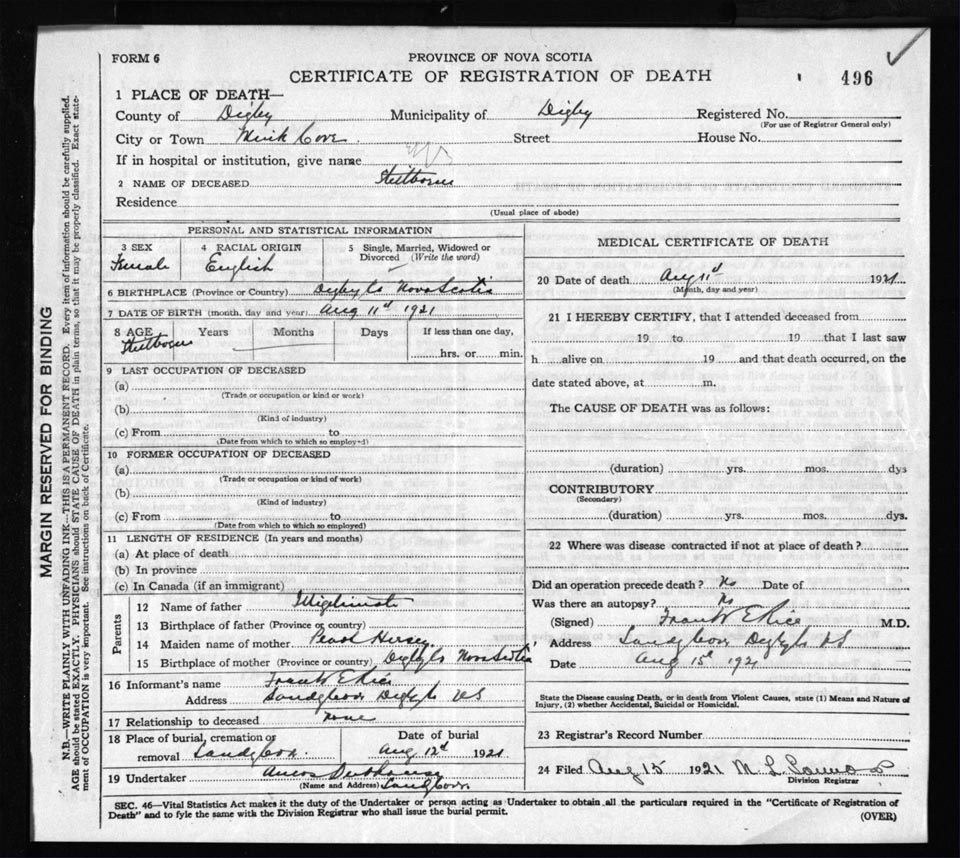 FORM 6
PROVINCE OF NOVA SCOTIA
CERTIFICATE OF REGISTRATION OF DEATH
496
1 PLACE OF DEATH—
County of Digby Municipality of Digby Registered No.
(For use of Registrar General only)
City or Town Mink Cove Street House No.
If in hospital or institution, give name
2 NAME OF DECEASED Stillborn
Residence
(Usual place of abode)
PERSONAL AND STATISTICAL INFORMATION
3 SEX Female
4 RACIAL ORIGIN English
5 Single, Married, Widowed or Divorced (Write the word)
6 BIRTHPLACE (Province or Country) Digby Co Nova Scotia
7 DATE OF BIRTH (month, day and year) Aug 11th 1921
8 AGE Stillborn Years Months Days If less than one day,
hrs. or min.
9 LAST OCCUPATION OF DECEASED
(a)
(Trade or occupation or kind of work)
(b)
(Kind of industry)
(c) From to
(Date from which to which so employed)
10 FORMER OCCUPATION OF DECEASED
(a)
(Trade or occupation or kind of work)
(b)
(Kind of industry)
(c) From to
(Date from which to which so employed)
11 LENGTH OF RESIDENCE (In years and months)
(a) At place of death
(b) In province
(c) In Canada (if an immigrant)
Parents
12 Name of father Illigitimate
13 Birthplace of father (Province or country)
14 Maiden name of mother Pearl Hersey
15 Birthplace of mother (Province or country) Digby Co Nova Scotia
16 Informant's name Frank E Rice
Address Sandy Cove Digby Co NS
17 Relationship to deceased none
18 Place of burial, cremation or
removal Sandy Cove
Date of burial
Aug 12th 1921
19 Undertaker
(Name and Address) Sandy Cove
MEDICAL CERTIFICATE OF DEATH
20 Date of death Aug 11th 1921
(Month, day and year)
21 I HEREBY CERTIFY, that I attended deceased from
19 to 19 that I last saw
h alive on 19 and that death occurred, on the
date stated above, at m.
The CAUSE OF DEATH was as follows:
(duration) yrs. mos. dys
CONTRIBUTORY
(Secondary)
(duration) yrs. mos. dys.
22 Where was disease contracted if not at place of death?
Did an operation precede death? No Date of
Was there an autopsy? No
(Signed) Frank E Rice M.D.
Address Sandy Cove Digby Co NS
Date Aug 15th 1921
State the Disease causing Death, or in death from Violent Causes, state (1) Means and Nature of
Injury, (2) whether Accidental, Suicidal or Homicidal.
23 Registrar's Record Number
24 Filed Aug 15 1921 M L
Division Registrar
SEC. 46—Vital Statistics Act makes it the duty of the Undertaker or person acting as Undertaker to obtain all the particulars required in the "Certificate of Registration of
Death" and to fyle the same with the Division Registrar who shall issue the burial permit.
(OVER)
MARGIN RESERVED FOR BINDING
N.B.—WRITE PLAINLY WITH UNFADING INK—THIS IS A PERMANENT RECORD. Every item of information should be carefully supplied.
AGE should be stated EXACTLY. PHYSICIANS should STATE CAUSE OF DEATH in plain terms, so that it may be properly classified. Exact state-
ment of OCCUPATION is very important. See instructions on back of Certificate.